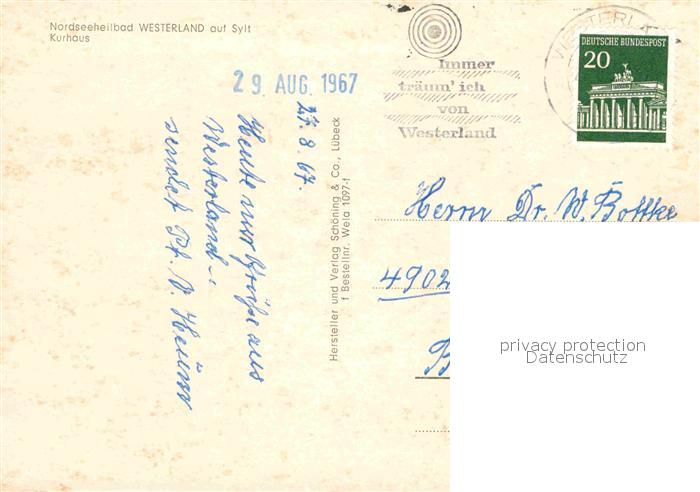 Nordseeheilbad WESTERLAND auf Sylt
Kurhaus
Immer
träum' ich
von
Westerland
WESTERLA
DEUTSCHE BUNDESPOST
20
29. AUG. 1967
27.8.67.
Heute nur Grüße aus
Westerland
sendet
Hersteller und Verlag Schöning & Co., Lübeck
f Bestellnr. Wela 1097-f
Herrn Dr. W. Bottke
4902
B
privacy protection
Datenschutz